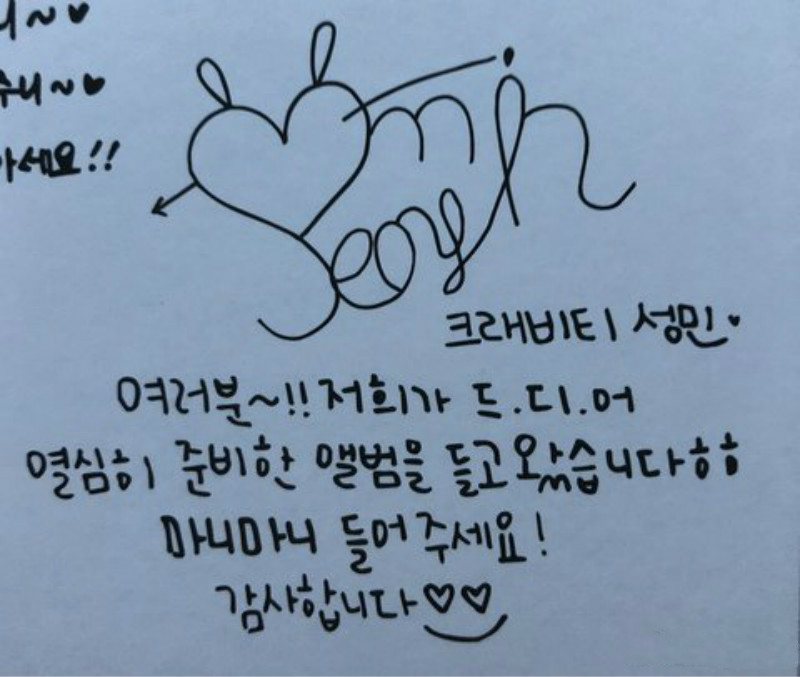 니~♥
수니~♥
마세요!!
Seongmin
크래비티 성민♥
여러분~!! 저희가 드.디.어
열심히 준비한 앨범을 들고왔습니다ㅎㅎ
마니마니 들어주세요!
감사합니다♡♡